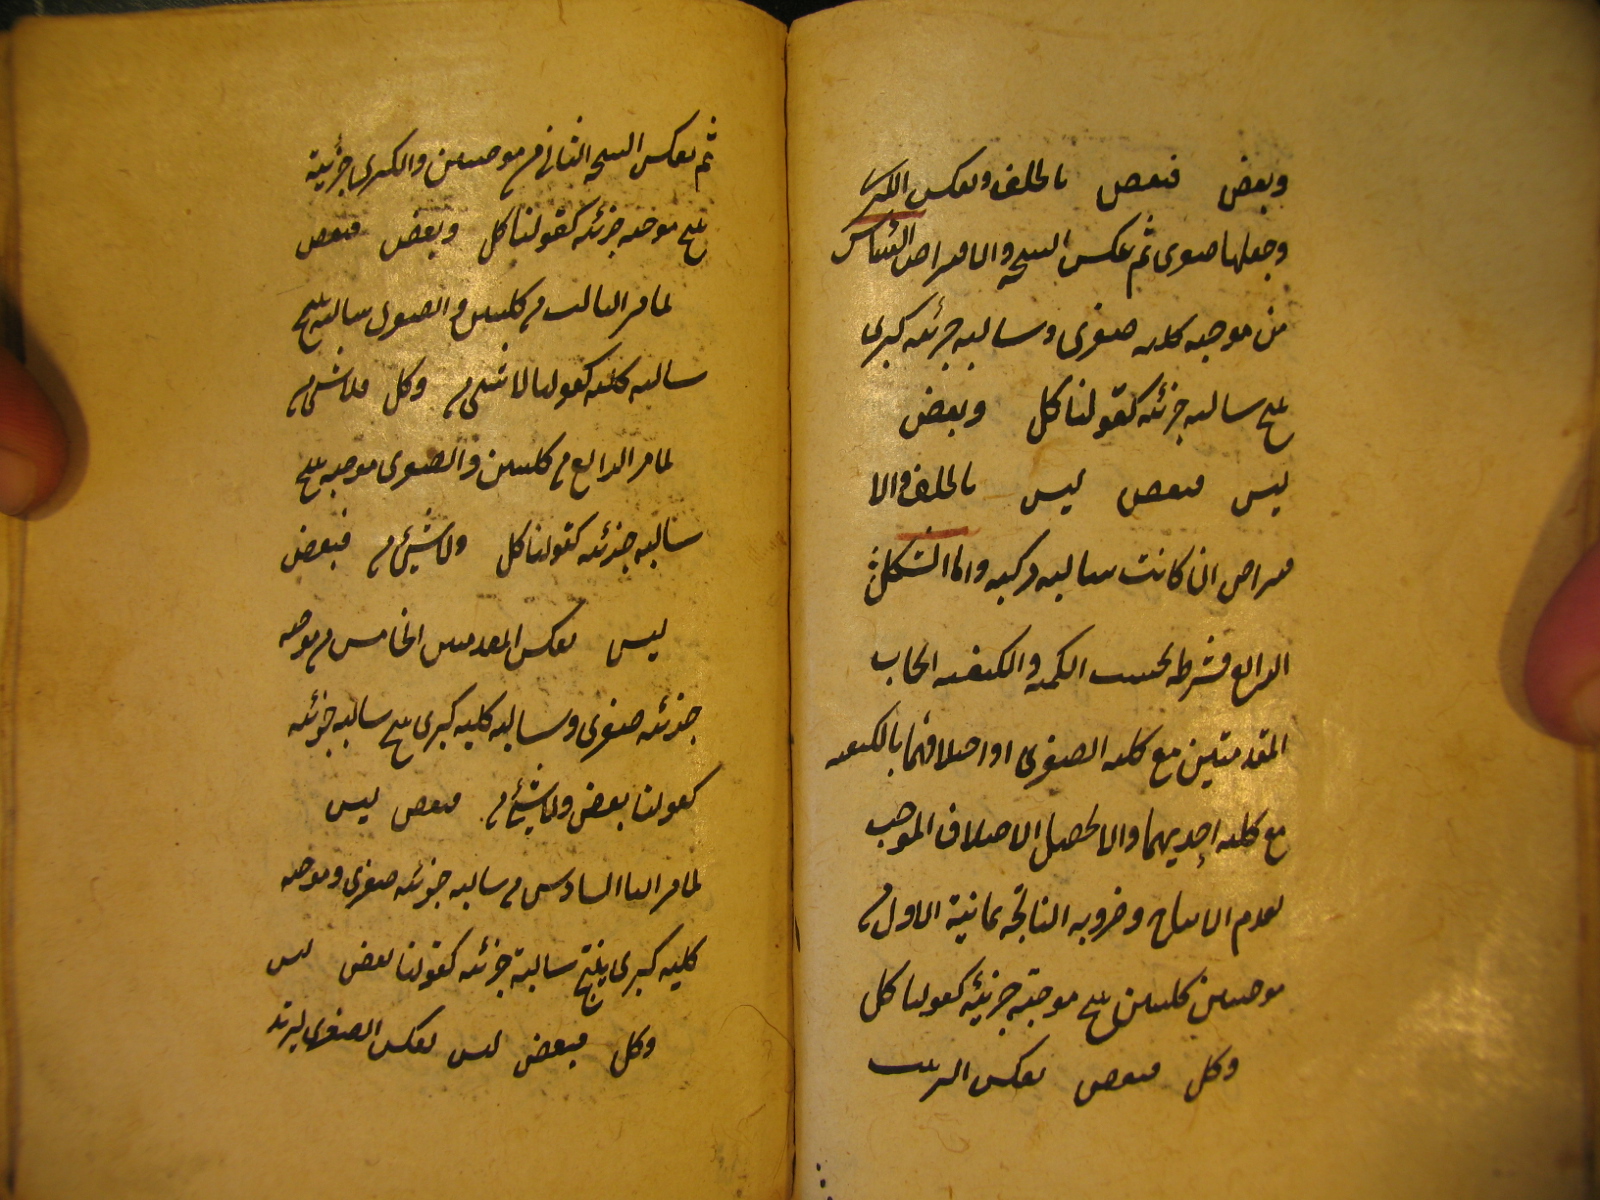 وبعض فبعض بالخلف وبعكس الكبرى
وجعلها صغرى ثم عكس النتيجة والافتراض السادس
من موجبه كليه صغرى وسالبه جزئيه كبرى
ينتج سالبه جزئيه كقولنا كل وبعض
ليس فبعض ليس بالخلف والا
فتراض ان كانت سالبه مركبه واما الشكل
الرابع فشرطه بحسب الكميه والكيفيه ايجاب
المقدمتين مع كليه الصغرى او اختلافهما بالكيفيه
مع كليه احديهما والا لحصل الاختلاف الموجب
لعدم الانتاج وضروبه الناتجة ثمانية الاول من
موجبتين كليتين ينتج موجبة جزئية كقولنا كل
وكل فبعض بعكس الترتيب
ثم بعكس النتيجه الثاني من موجبتين والكبرى جزئية
ينتج موجبه جزئيه كقولنا كل وبعض فبعض
لما مر الثالث من كليتين والصغرى سالبه ينتج
سالبه كليه كقولنا لا شئ من وكل فلا شئ من
لما مر الرابع من كليتين والصغرى موجبه ينتج
سالبه جزئيه كقولنا كل ولا شئ من فبعض
ليس بعكس المقدمتين الخامس من موجبه
جزئيه صغرى وسالبه كليه كبرى ينتج سالبه جزئيه
كقولنا بعض ولا شئ من فبعض ليس
لما مر السادس من سالبه جزئيه صغرى وموجبه
كليه كبرى ينتج سالبة جزئيه كقولنا بعض ليس
وكل فبعض ليس بعكس الصغرى ليرتد